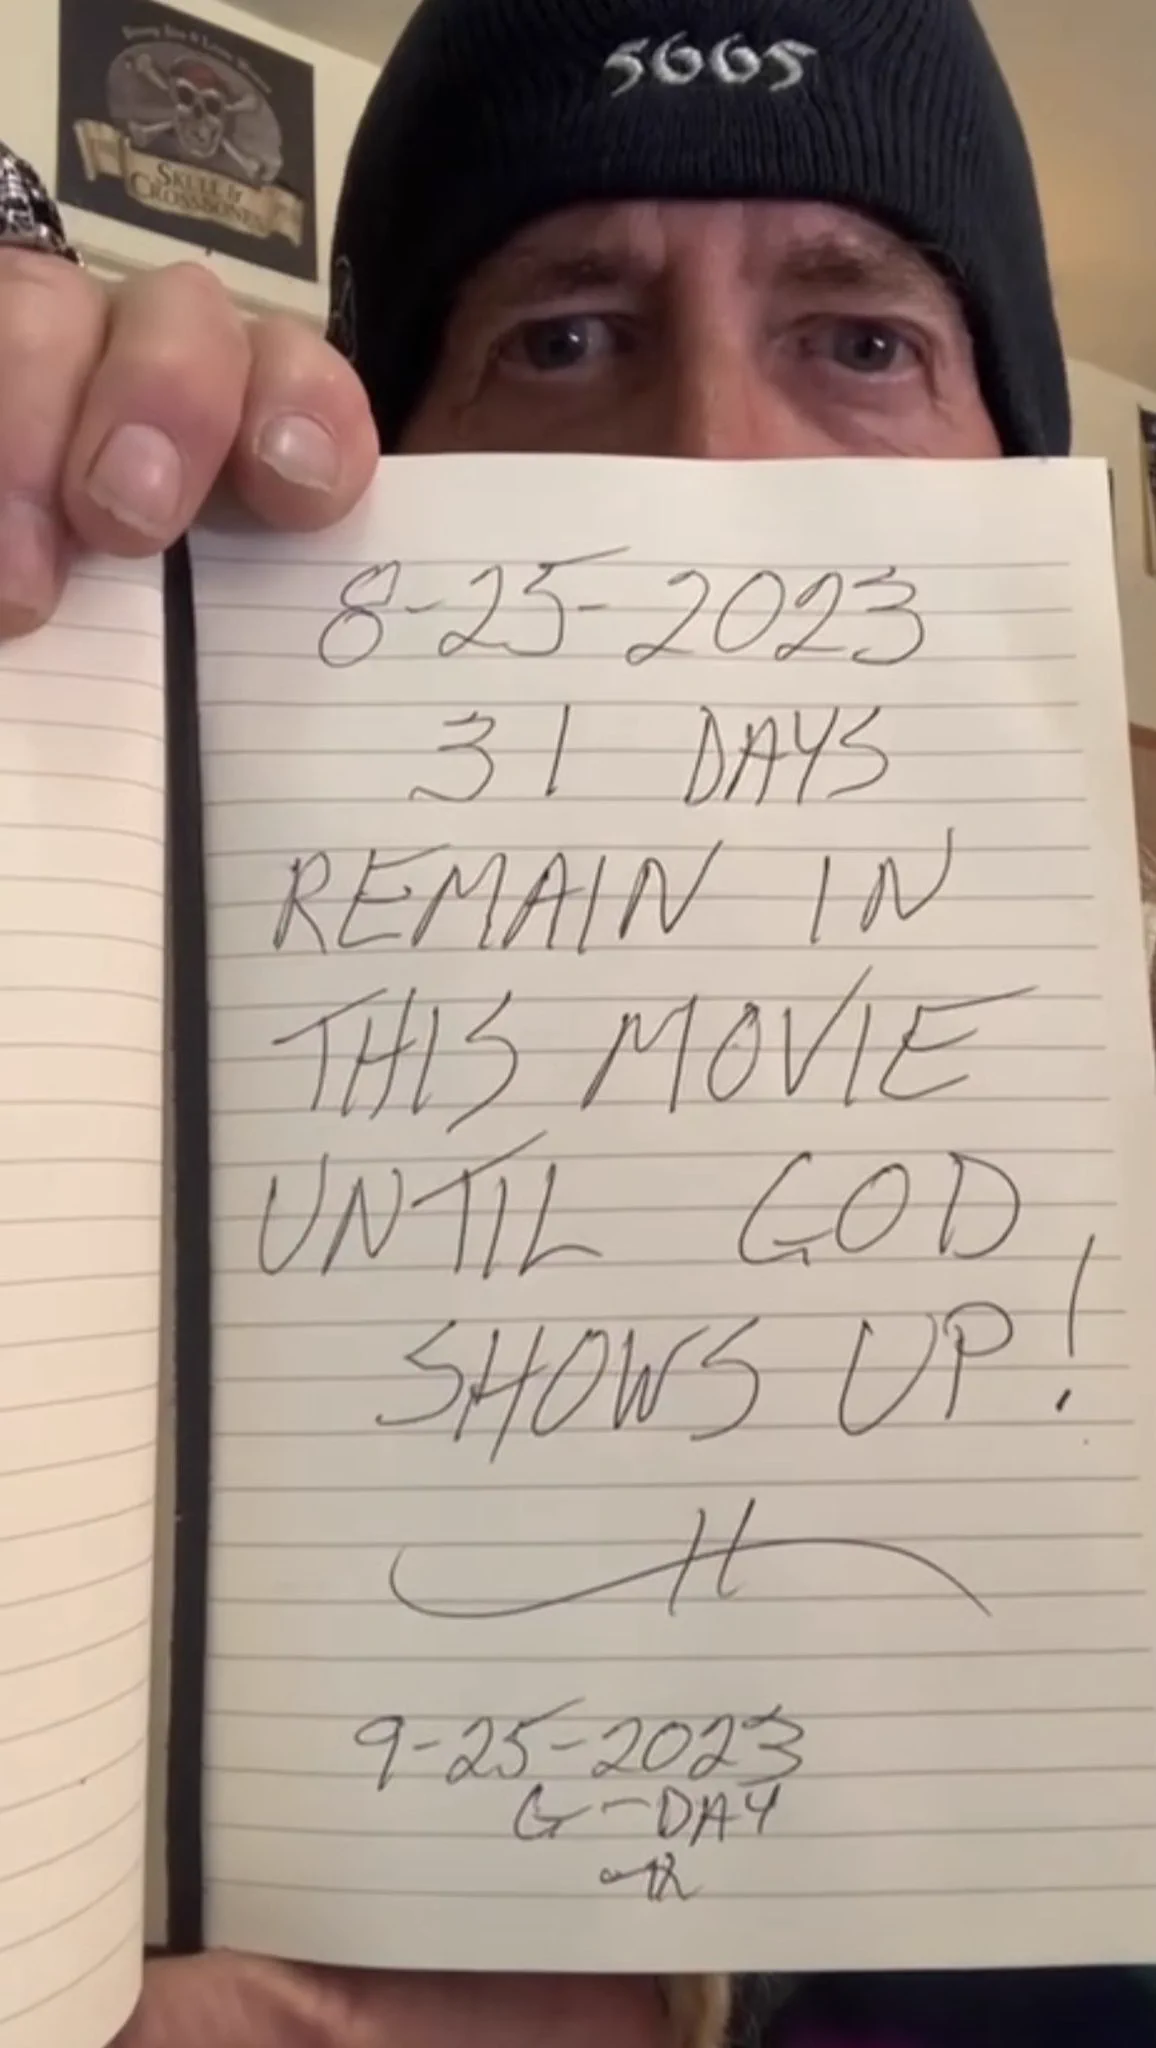 5665
SKULL &
CROSSBONES
8-25-2023
31 DAYS
REMAIN IN
THIS MOVIE
UNTIL GOD
SHOWS UP!
9-25-2023
G-DAY